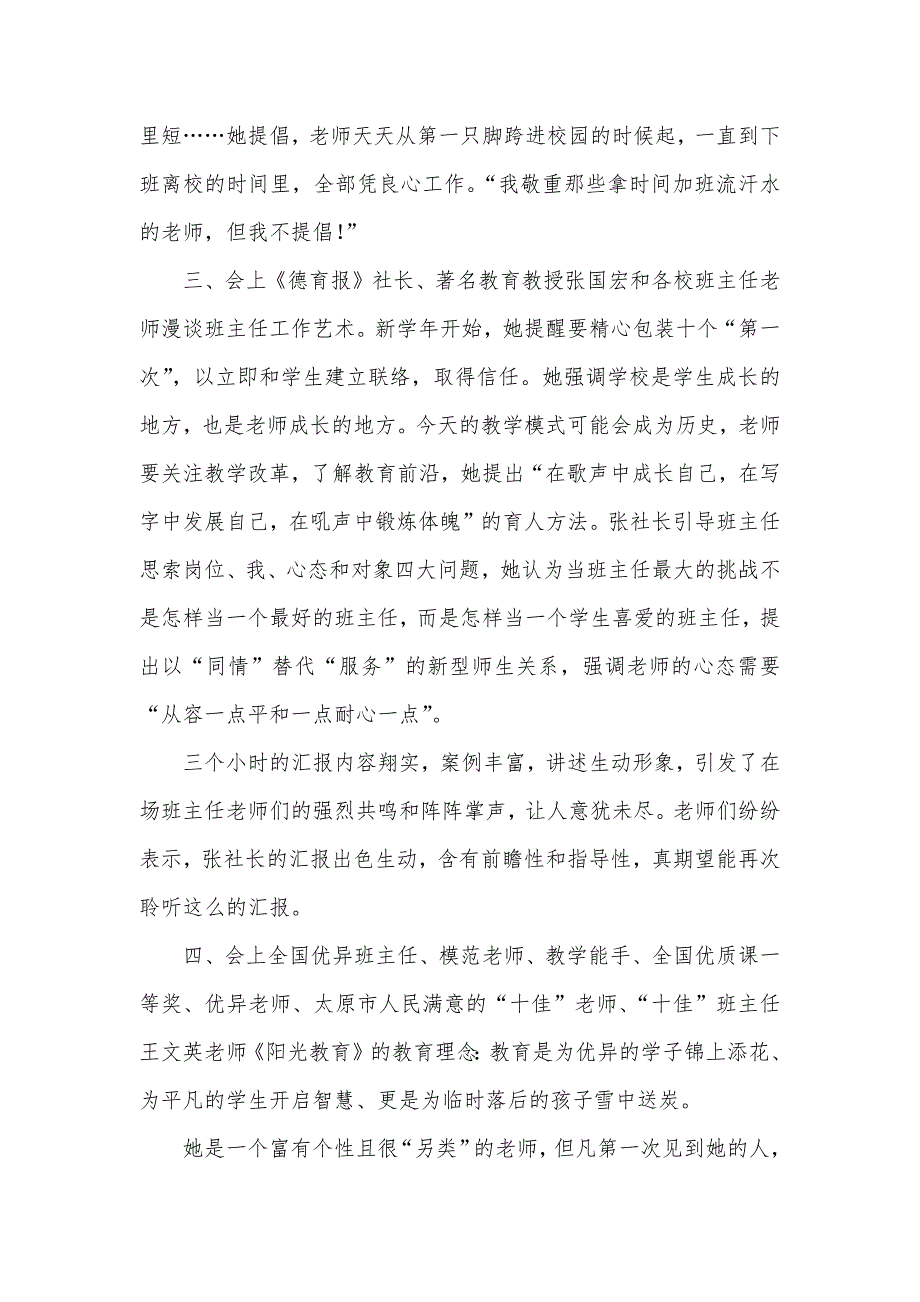 里短……她提倡，老师天天从第一只脚跨进校园的时候起，一直到下
班离校的时间里，全部凭良心工作。“我敬重那些拿时间加班流汗水
的老师，但我不提倡！”
三、会上《德育报》社长、著名教育教授张国宏和各校班主任老
师漫谈班主任工作艺术。新学年开始，她提醒要精心包装十个“第一
次”，以立即和学生建立联络，取得信任。她强调学校是学生成长的
地方，也是老师成长的地方。今天的教学模式可能会成为历史，老师
要关注教学改革，了解教育前沿，她提出“在歌声中成长自己，在写
字中发展自己，在吼声中锻炼体魄”的育人方法。张社长引导班主任
思索岗位、我、心态和对象四大问题，她认为当班主任最大的挑战不
是怎样当一个最好的班主任，而是怎样当一个学生喜爱的班主任，提
出以“同情”替代“服务”的新型师生关系，强调老师的心态需要
“从容一点平和一点耐心一点”。
三个小时的汇报内容翔实，案例丰富，讲述生动形象，引发了在
场班主任老师们的强烈共鸣和阵阵掌声，让人意犹未尽。老师们纷纷
表示，张社长的汇报出色生动，含有前瞻性和指导性，真期望能再次
聆听这么的汇报。
四、会上全国优异班主任、模范老师、教学能手、全国优质课一
等奖、优异老师、太原市人民满意的“十佳”老师、“十佳”班主任
王文英老师《阳光教育》的教育理念：教育是为优异的学子锦上添花、
为平凡的学生开启智慧、更是为临时落后的孩子雪中送炭。
她是一个富有个性且很“另类”的老师，但凡第一次见到她的人，